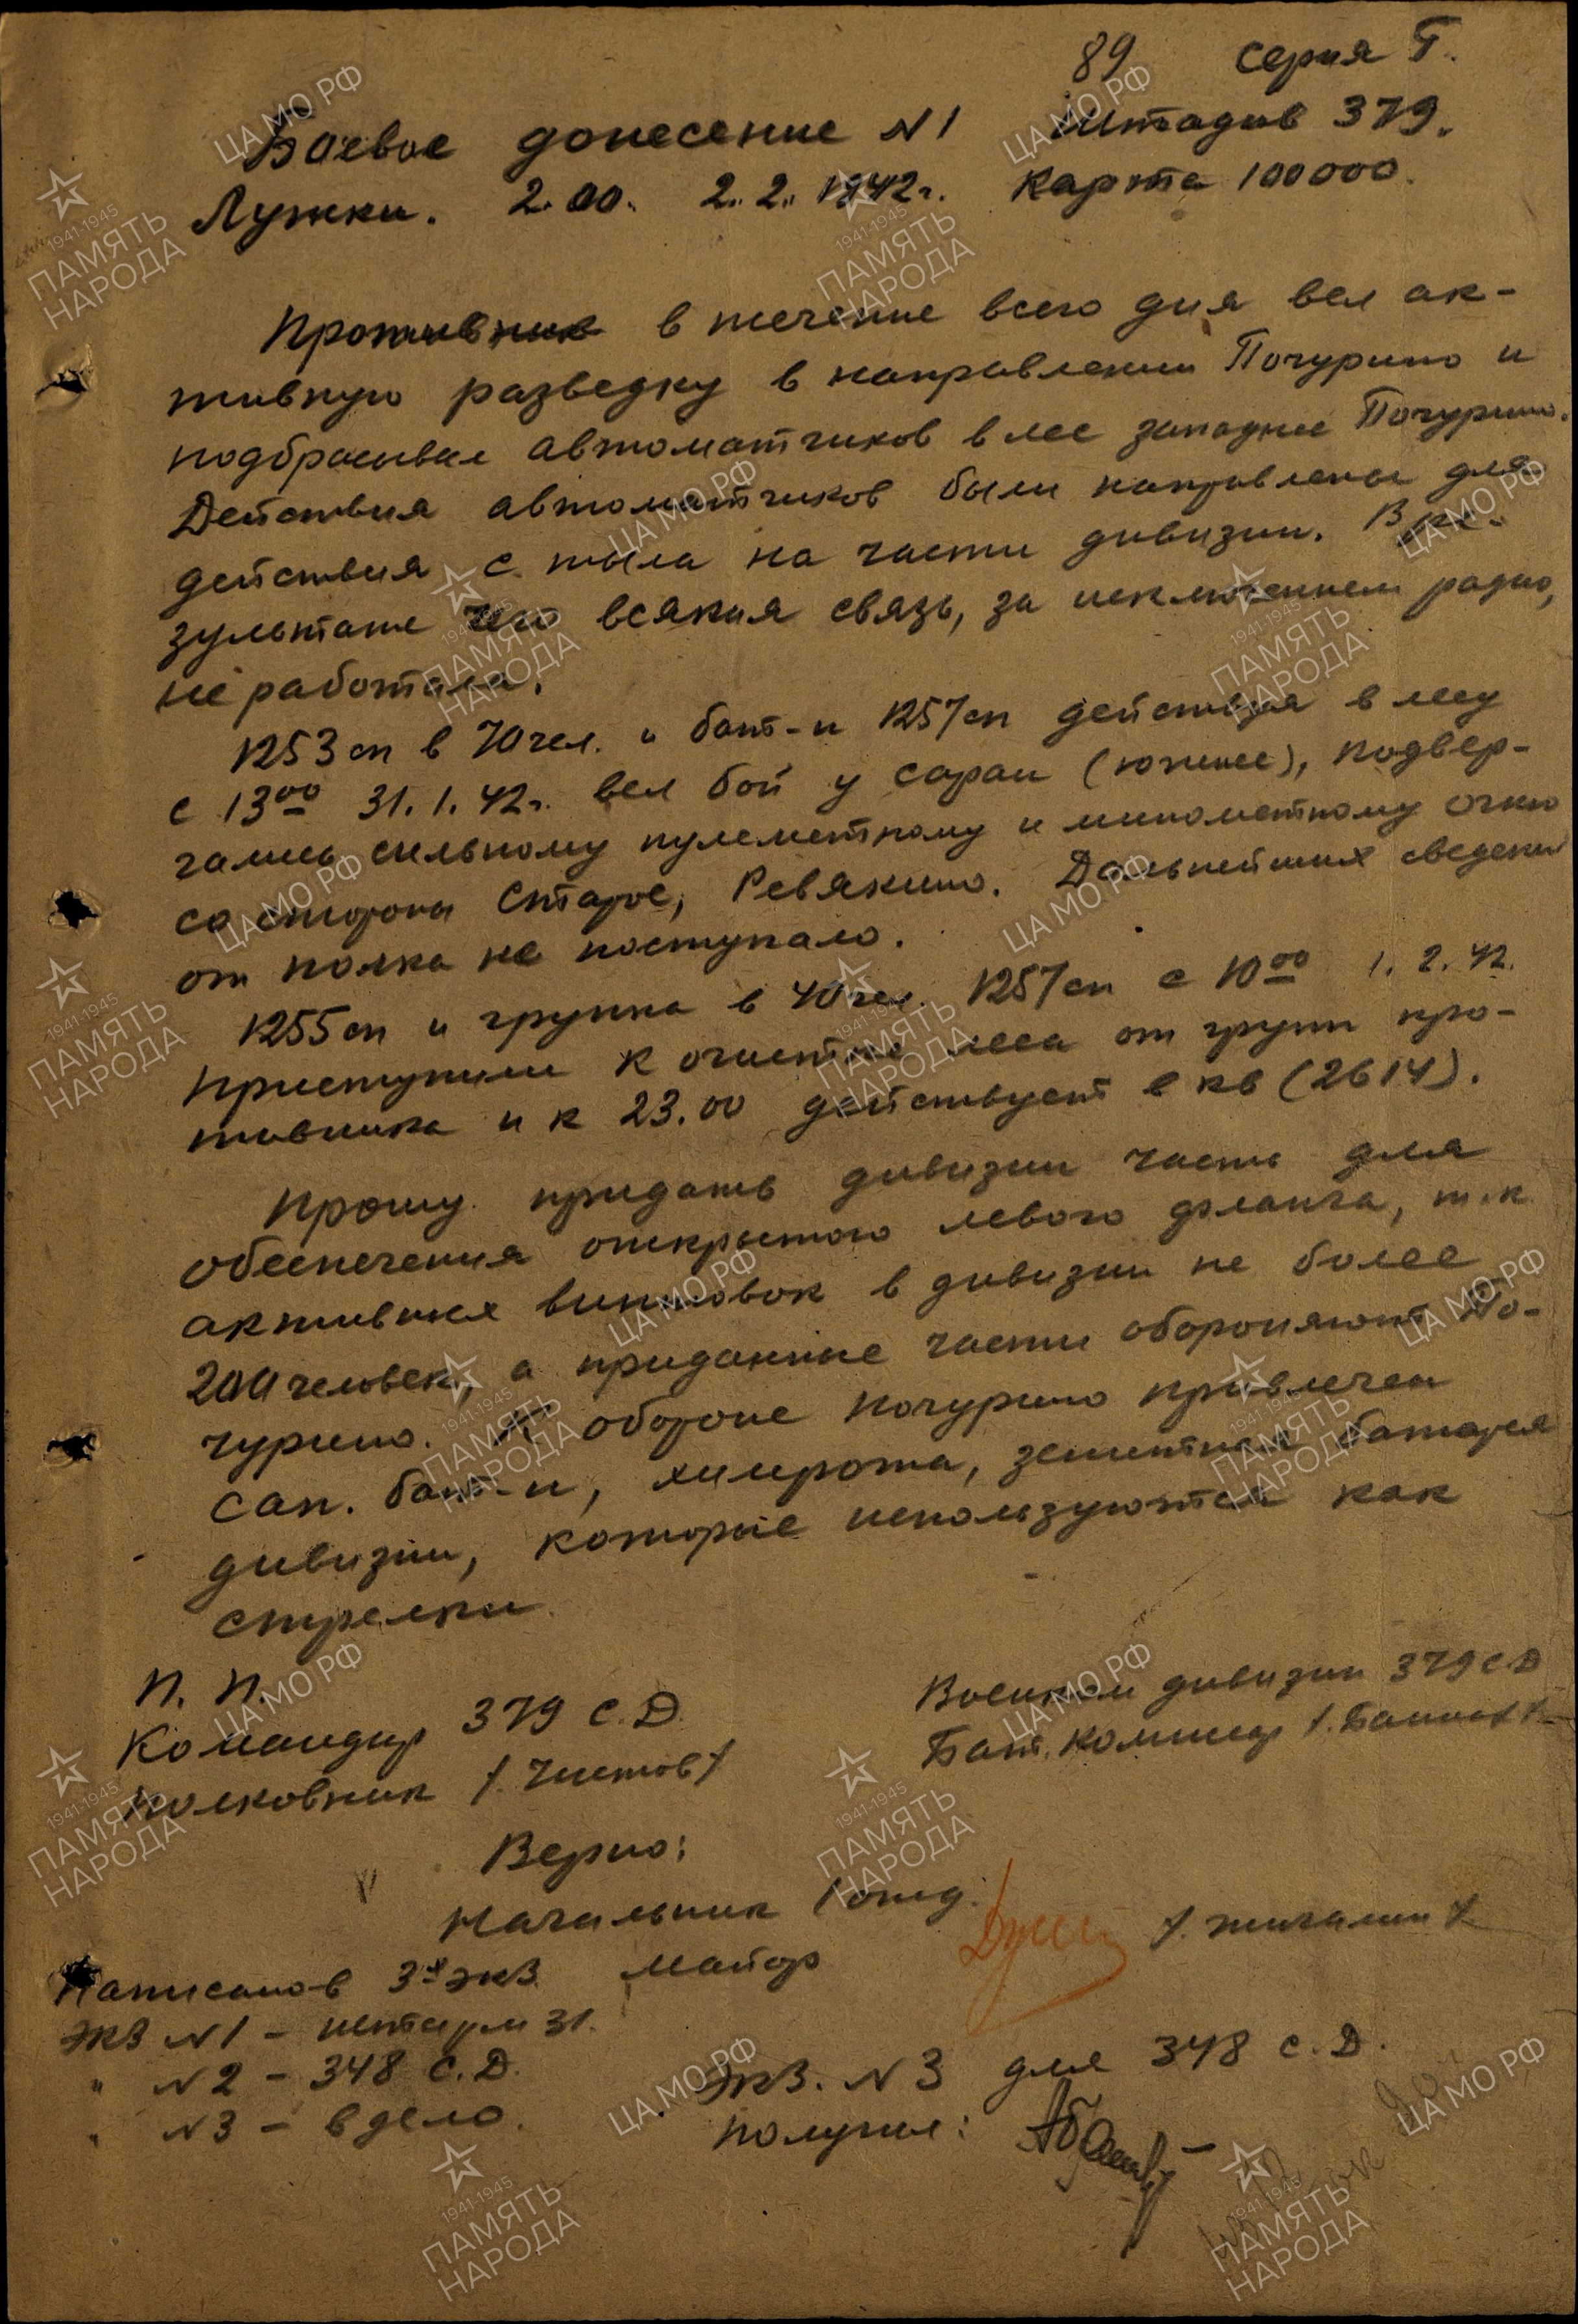 89 серия Г.
Боевое донесение N1 Штадив 379.
Лужки. 2.00. 2.2.1942г. Карта 100000.
Противник в течение всего дня вел ак-
тивную разведку в направлении Почурино и
подбрасывал автоматчиков в лес западнее Почурино.
Действия автоматчиков были направлены для
действия с тыла на части дивизии. В ре-
зультате чего всякая связь, за исключением радио,
не работала.
1253 сп в 70 чел. и бат-н 1257 сп действуя в лесу
с 13 00 31.1.42г. вел бой у сараи (южнее), подвер-
гаясь сильному пулеметному и минометному огню
со стороны Старое, Ревякино. Дальнейших сведений
от полка не поступало.
1255 сп и группа в 40 чел. 1257 сп с 10 00 1.2.42.
приступили к очистке леса от групп про-
тивника и к 23.00 действует в кв (2614).
Прошу придать дивизии часть для
обеспечения открытого левого фланга, т.к.
активных винтовок в дивизии не более
200 человек, а приданные части обороняют По-
чурино. К обороне Почурино привлечен
сап. бат-н, химрота, зенитная батарея
дивизии, которые используются как
стрелки.
п. п.
Командир 379 С.Д. Военком дивизии 379 С.Д
полковник /. Чистов/ Бат. комиссар
Верно:
Начальник 1 отд.
майор /. Жигалин /.
Написано в 3х экз.
Экз N1 - штарм 31.
" N2 - 348 С.Д.
" N3 - в дело.
Экз. N3 для 348 С.Д.
получил:
ЦА МО РФ
1941-1945
ПАМЯТЬ
НАРОДА